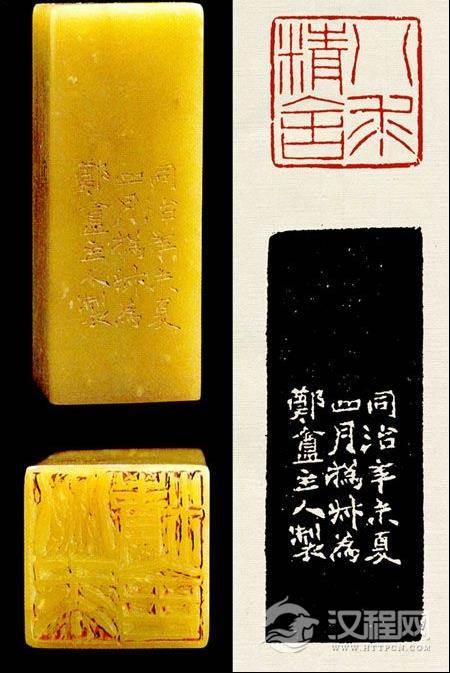 同治辛未夏
四月撝叔為
鄭盦主人製
八求
精舍
同治辛未夏
四月撝叔為
鄭盦主人製
汉程网
WWW.HTTPCN.COM